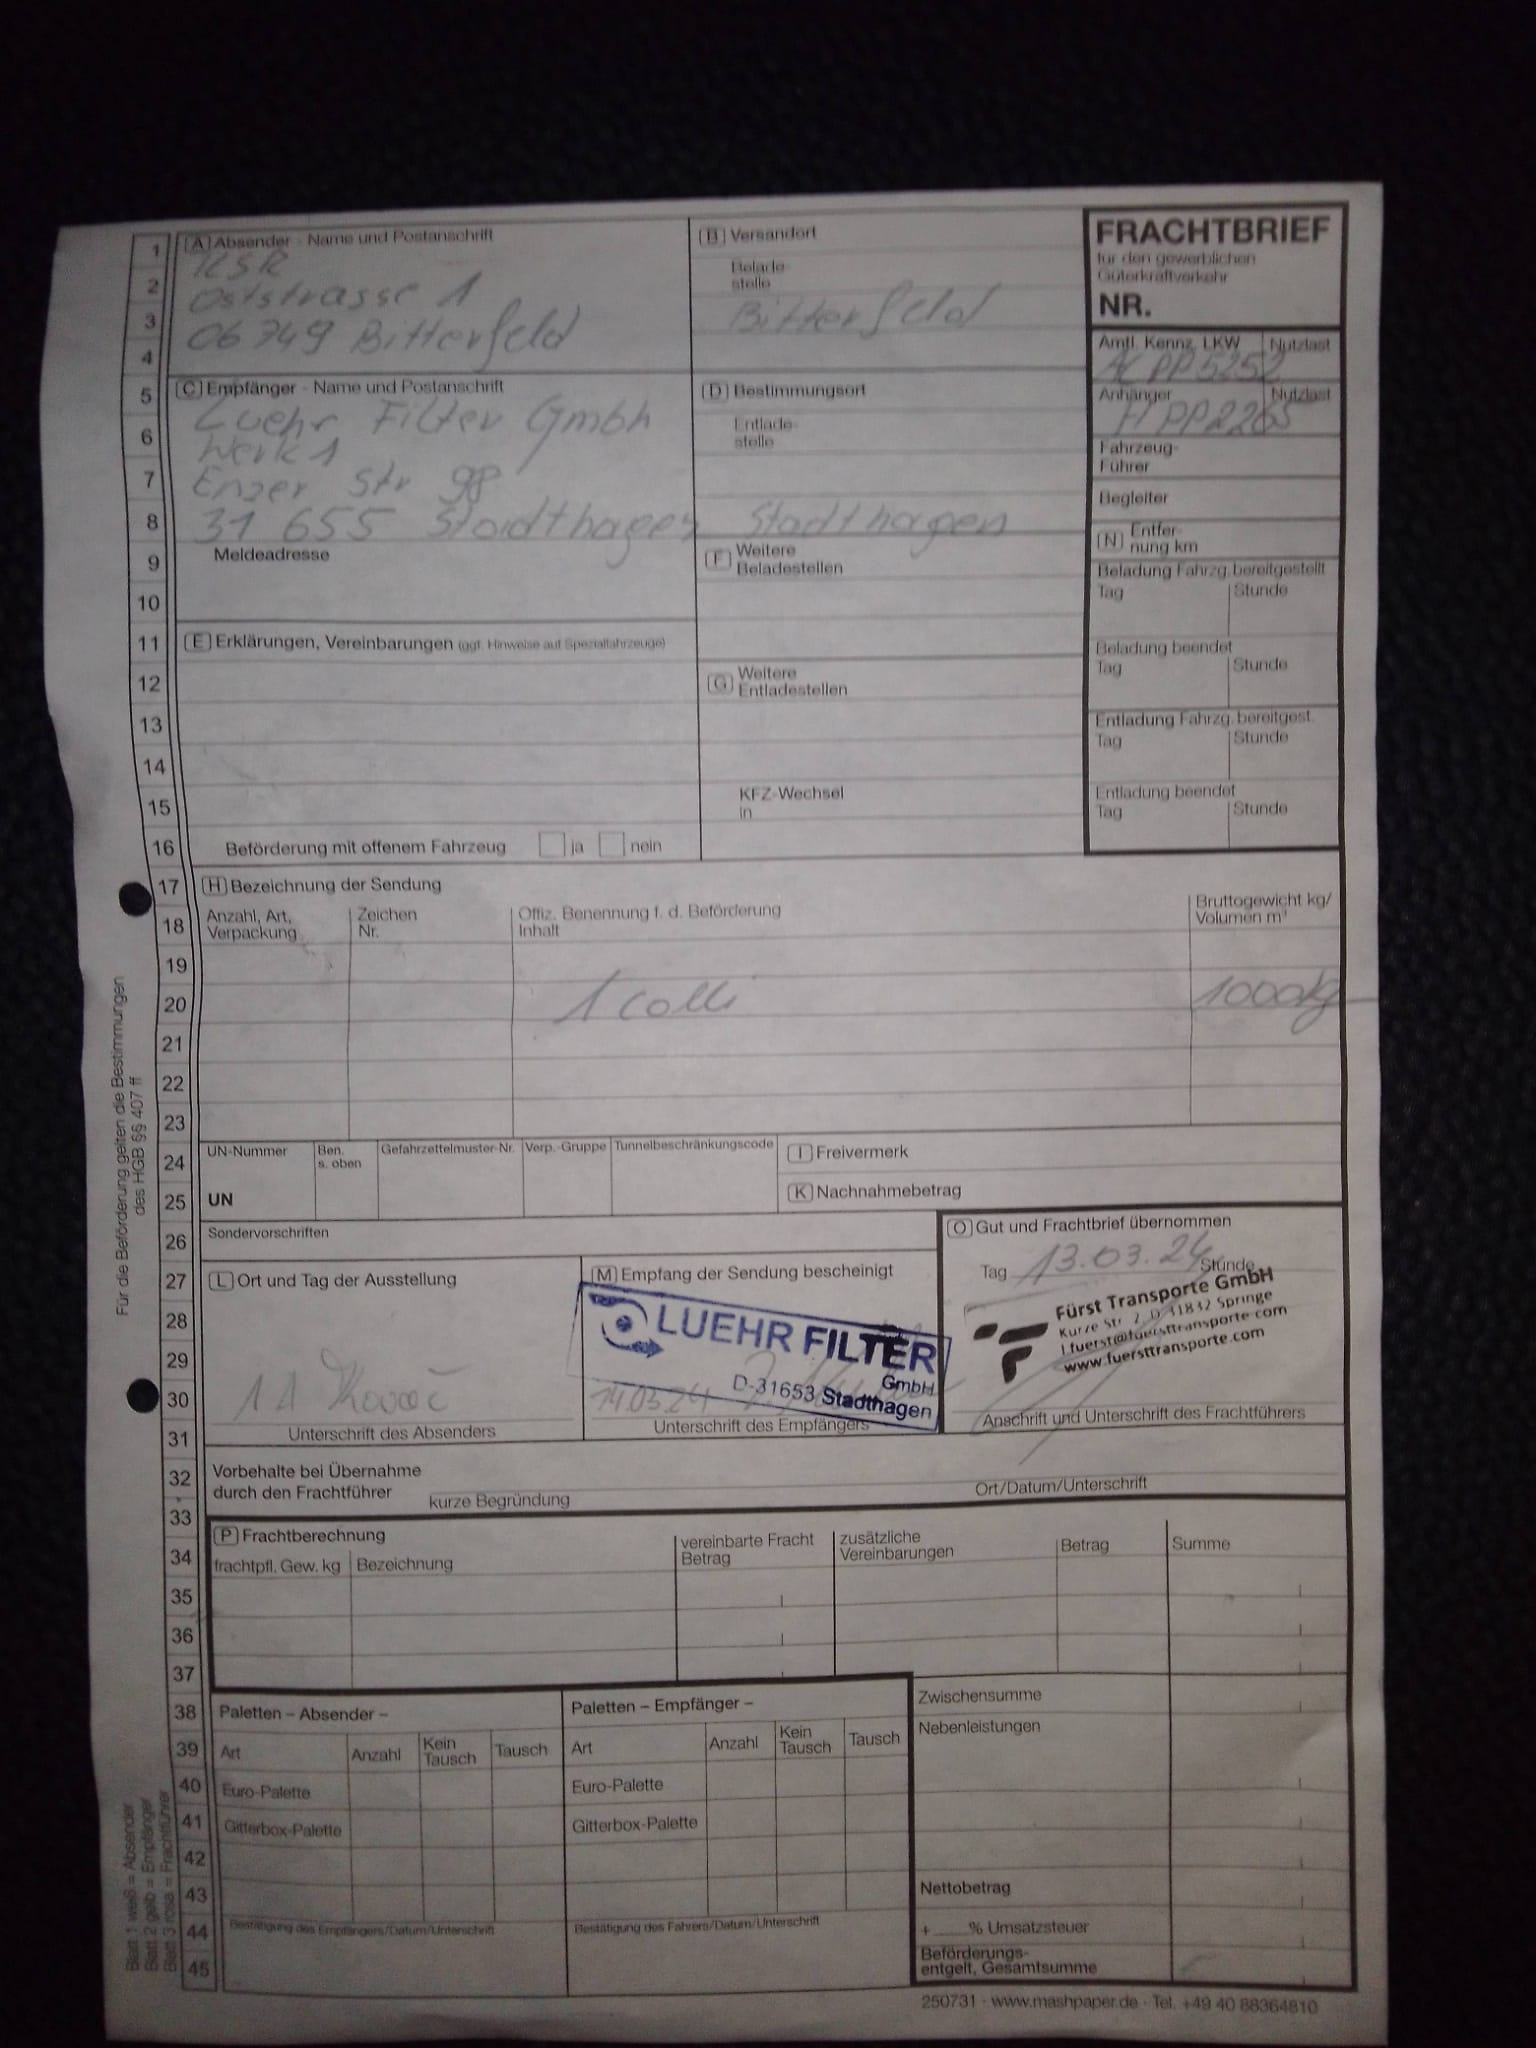 1
2
3
4
5
6
7
8
9
10
11
12
13
14
15
16
17
18
19
20
21
22
23
24
25
26
27
28
29
30
31
32
33
34
35
36
37
38
39
40
41
42
43
44
45
A Absender - Name und Postanschrift
Oststrasse 1
06749 Bitterfeld
B Versandort
Belade-
stelle
Bitterfeld
FRACHTBRIEF
für den gewerblichen
Güterkraftverkehr
NR.
Amtl. Kennz. LKW
Nutzlast
PP 5252
Anhänger
Nutzlast
PP 2265
Fahrzeug-
Führer
Begleiter
N Entfer-
nung km
Beladung Fahrzg. bereitgestellt
Tag
Stunde
Beladung beendet
Tag
Stunde
Entladung Fahrzg. bereitgest.
Tag
Stunde
Entladung beendet
Tag
Stunde
C Empfänger - Name und Postanschrift
Luehr Filter Gmbh
Werk 1
Enzer Str 98
31 655 Stadthagen
Meldeadresse
D Bestimmungsort
Entlade-
stelle
Stadthagen
F Weitere
Beladestellen
E Erklärungen, Vereinbarungen (ggf. Hinweise auf Spezialfahrzeuge)
G Weitere
Entladestellen
KFZ-Wechsel
in
Beförderung mit offenem Fahrzeug ja nein
H Bezeichnung der Sendung
Anzahl, Art,
Verpackung
Zeichen
Nr.
Offiz. Benennung f. d. Beförderung
Inhalt
Bruttogewicht kg/
Volumen m³
1 colli
1000kg
UN-Nummer
UN
Ben.
s. oben
Gefahrzettelmuster-Nr.
Verp.-Gruppe
Tunnelbeschränkungscode
I Freivermerk
K Nachnahmebetrag
Sondervorschriften
L Ort und Tag der Ausstellung
Unterschrift des Absenders
M Empfang der Sendung bescheinigt
LUEHR FILTER
GmbH
D-31653 Stadthagen
14.03.24
Unterschrift des Empfängers
O Gut und Frachtbrief übernommen
Tag 13.03.24 Stunde
Fürst Transporte GmbH
Kurze Str. 2, D-31832 Springe
l.fuerst@fuersttransporte.com
www.fuersttransporte.com
Anschrift und Unterschrift des Frachtführers
Vorbehalte bei Übernahme
durch den Frachtführer
kurze Begründung
Ort/Datum/Unterschrift
P Frachtberechnung
frachtpfl. Gew. kg
Bezeichnung
vereinbarte Fracht
Betrag
zusätzliche
Vereinbarungen
Betrag
Summe
Paletten – Absender –
Art
Anzahl
Kein
Tausch
Tausch
Euro-Palette
Gitterbox-Palette
Bestätigung des Empfängers/Datum/Unterschrift
Paletten – Empfänger –
Art
Anzahl
Kein
Tausch
Tausch
Euro-Palette
Gitterbox-Palette
Bestätigung des Fahrers/Datum/Unterschrift
Zwischensumme
Nebenleistungen
Nettobetrag
+ ____% Umsatzsteuer
Beförderungs-
entgelt, Gesamtsumme
250731 · www.mashpaper.de · Tel. +49 40 88364810
Für die Beförderung gelten die Bestimmungen
des HGB §§ 407 ff
Blatt 1 weiß = Absender
Blatt 2 gelb = Empfänger
Blatt 3 rosa = Frachtführer